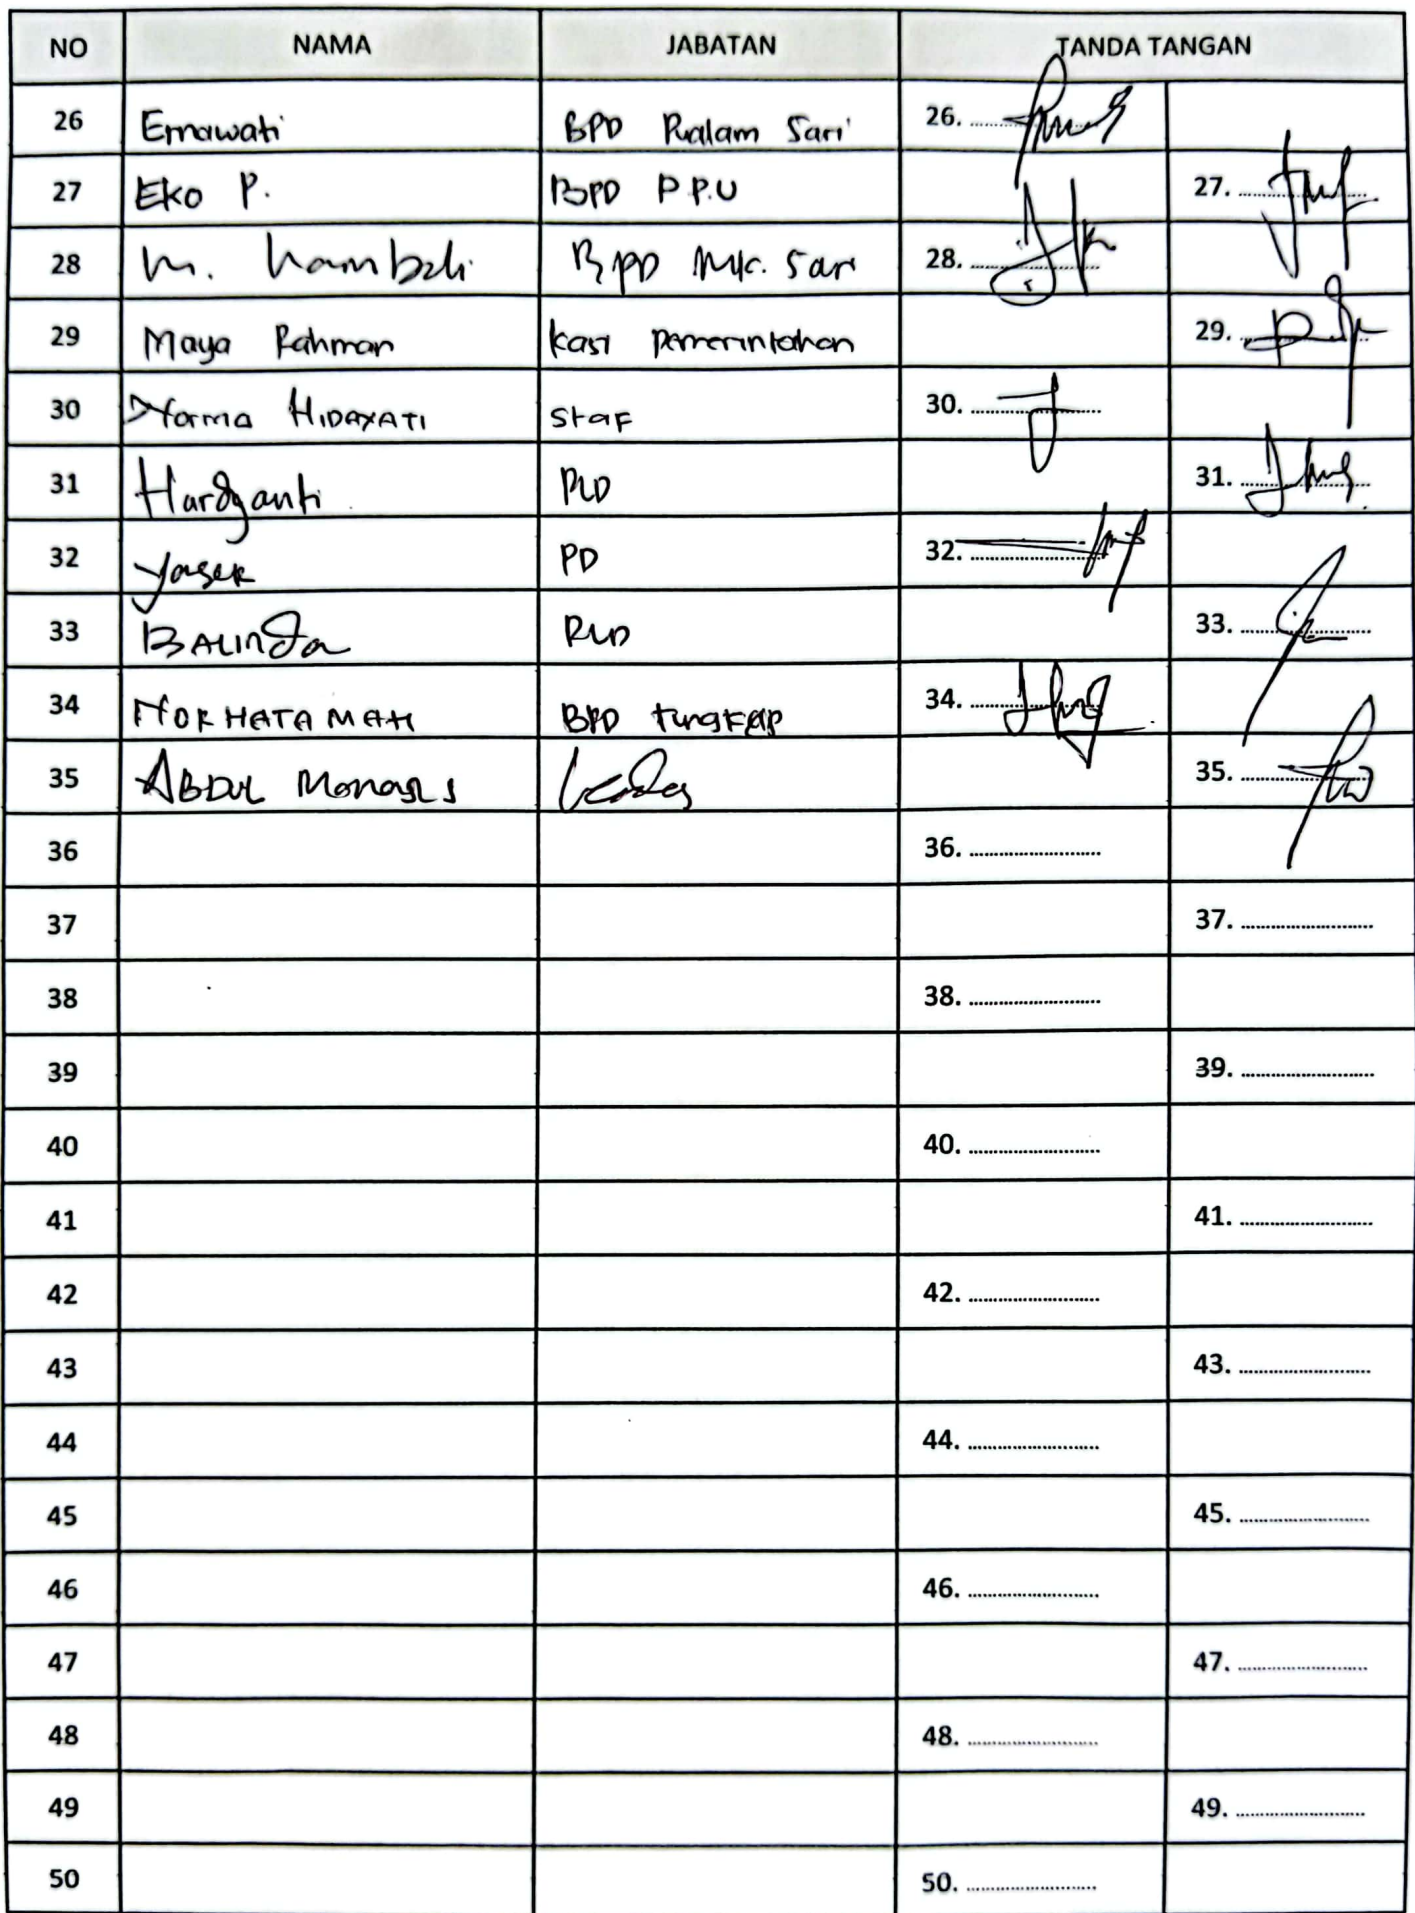 NO NAMA JABATAN TANDA TANGAN
26 Ernawati BPD Pualam Sari 26. ....................
27 Eko P. BPD P.P.U 27. ....................
28 M. Hambali BPD Mk. Sari 28. ....................
29 Maya Rahman Kasi Pemerintahan 29. ....................
30 Norma HIDAYATI Staf 30. ....................
31 Hardyanti PLD 31. ....................
32 Yaser PD 32. ....................
33 BALINDA PLD 33. ....................
34 NORHATAMAH BPD Tungkap 34. ....................
35 ABDUL Kades 35. ....................
36 36. ....................
37 37. ....................
38 38. ....................
39 39. ....................
40 40. ....................
41 41. ....................
42 42. ....................
43 43. ....................
44 44. ....................
45 45. ....................
46 46. ....................
47 47. ....................
48 48. ....................
49 49. ....................
50 50. ....................